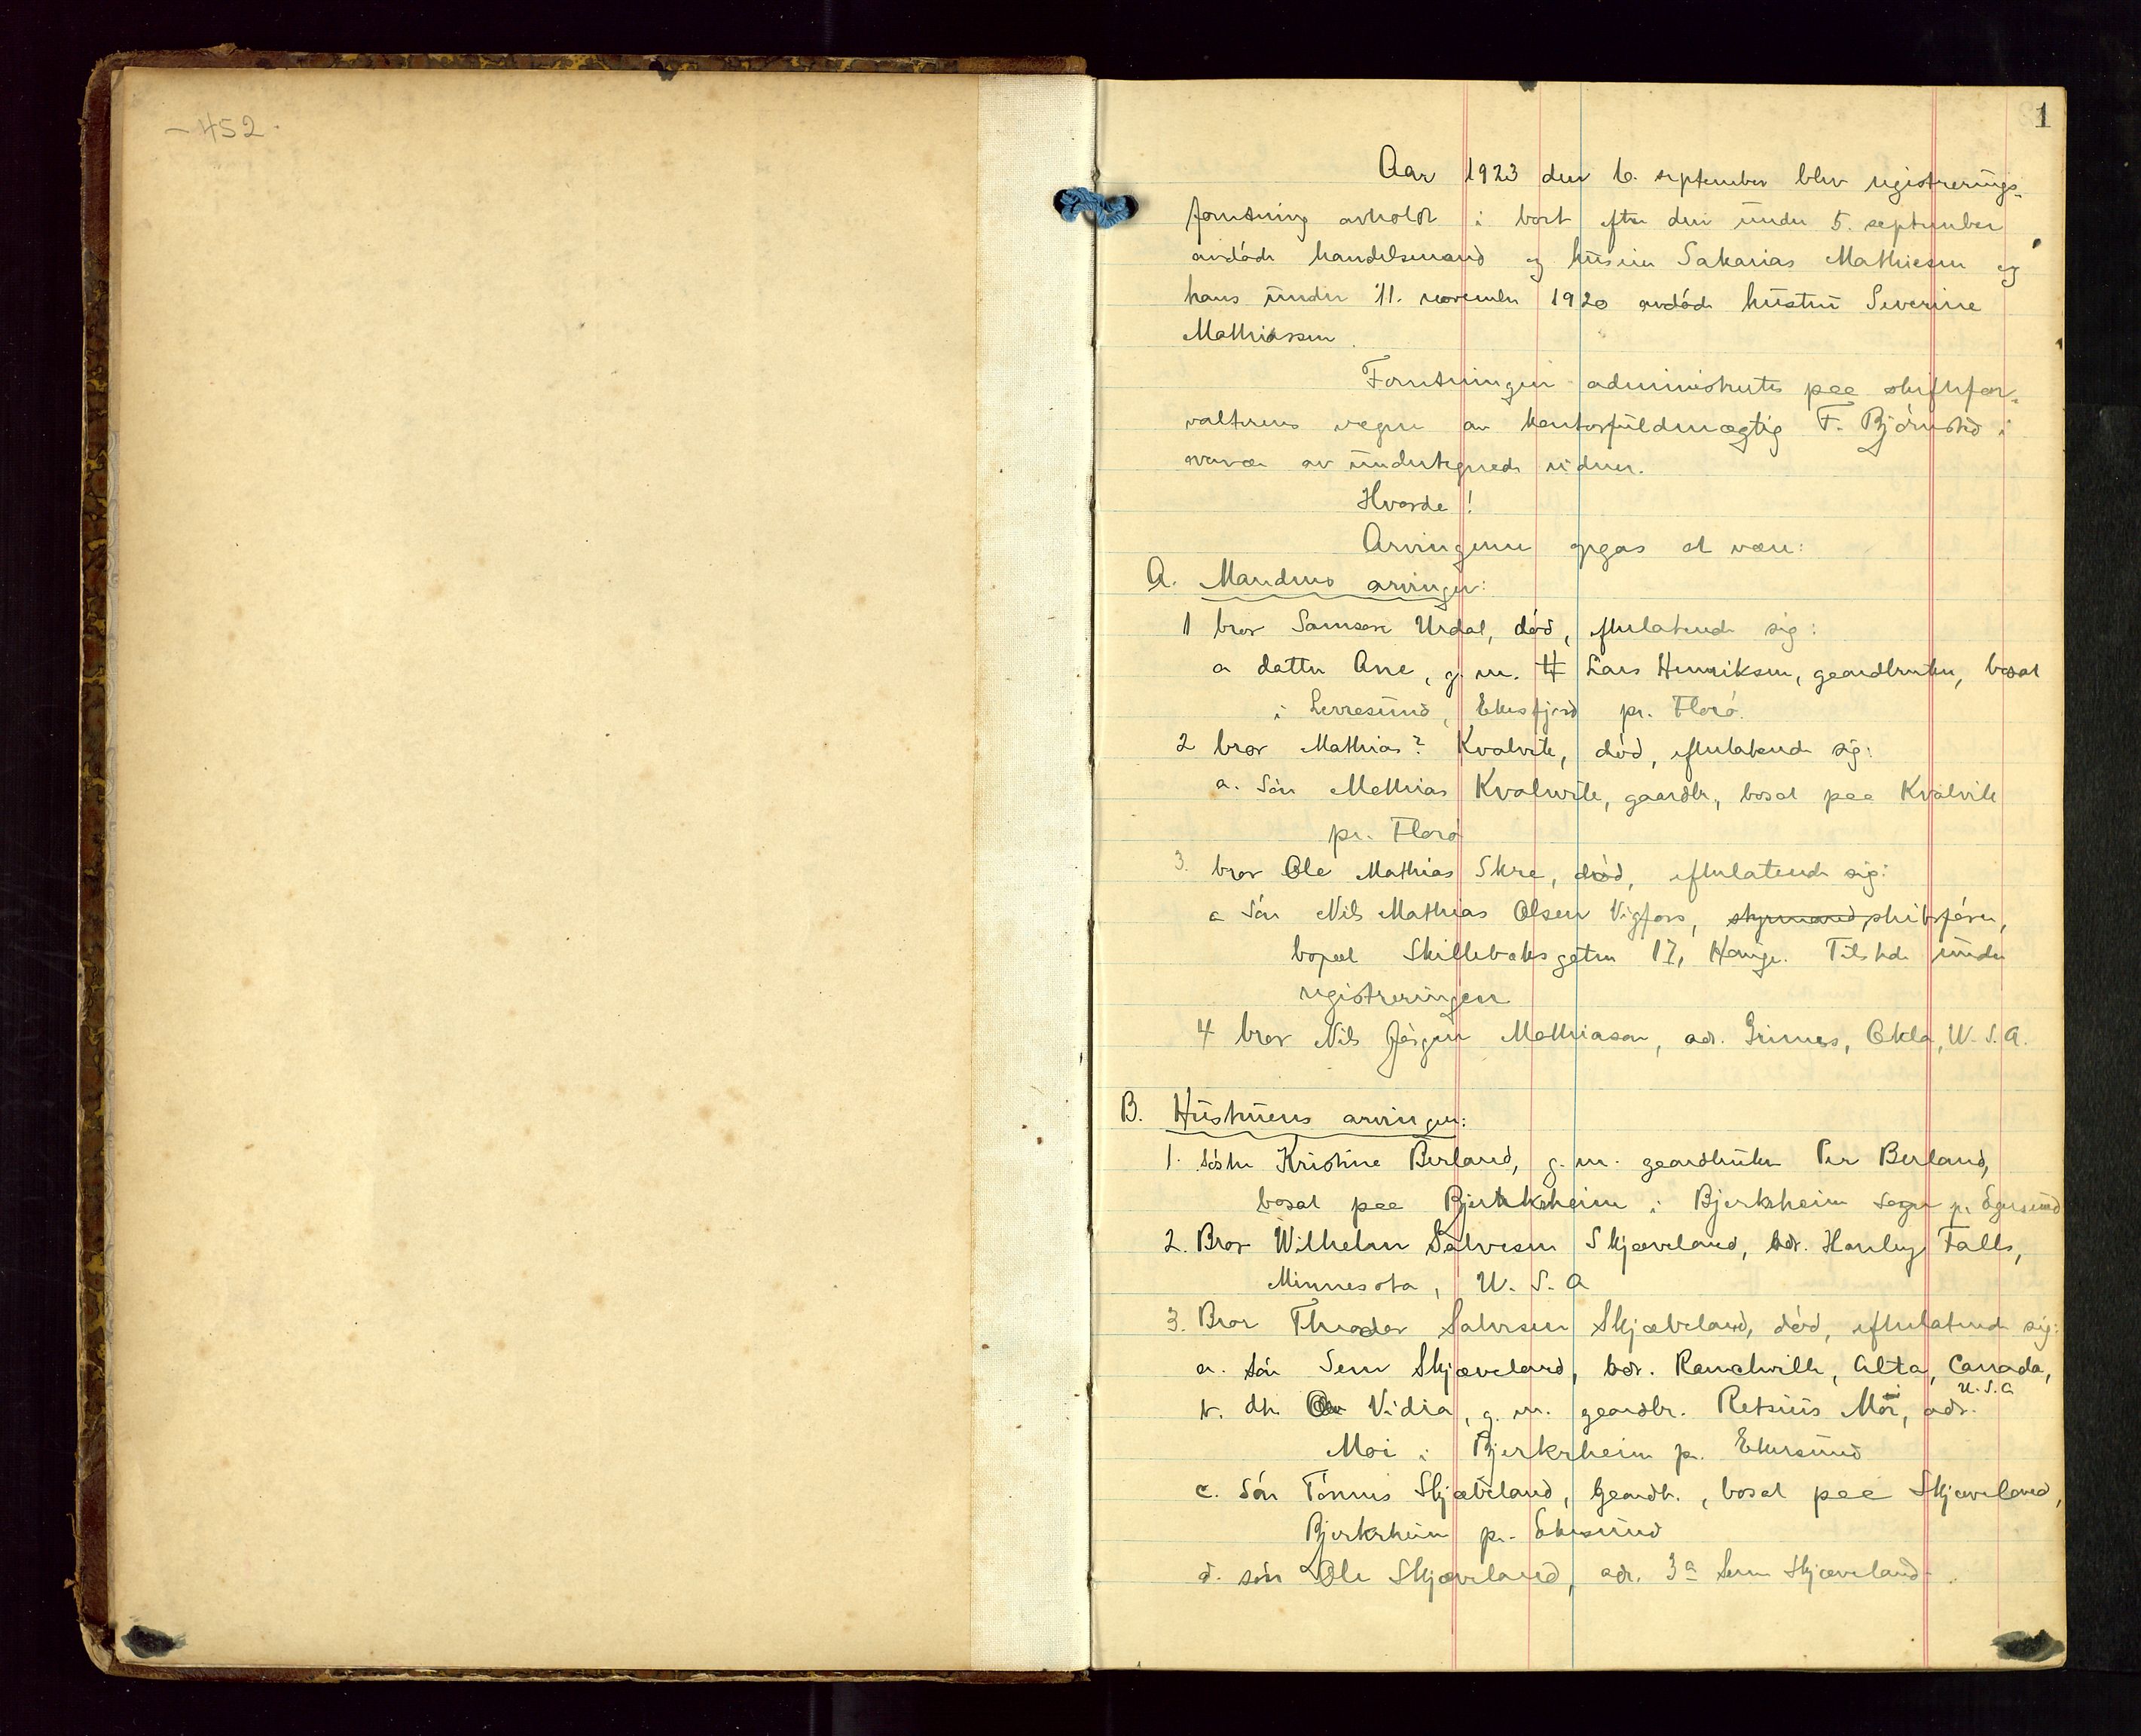 - 452.
1
Aar 1923 den 6. september blev registrerings-
forretning avholdt i boet efter den under 5. september
avdøde handelsmand og huseier Sakarias Mathiesen og
hans under 11. november 1920 avdøde hustru Severine
Mathiassen.
Forretningen administrertes paa skiftefor-
valterens vegne av kontorfuldmægtig F. Bjørnstad i
nærvær av undertegnede vidner.
Hvorda!
Arvingerne opgas at være:
A. Mandens arvinger:
1 bror Samson Urdal, død, efterlatende sig:
a datter Ane, g. m. H Lars Henriksen, gaardbruker, bosat
i Lerresund, Eikefjord pr. Florø.
2 bror Mathias? Kvalvik, død, efterlatende sig:
a. Søn Mathias Kvalvik, gaardbr, bosat paa Kvalvik
pr. Florø
3. bror Ole Mathias Skre, død, efterlatende sig:
a Søn Nils Mathias Olsen Vigfoss, styrmand, skibsfører,
bopæl Skillebæksgaten 17, Hauge. Tilstede under
registreringen
4 bror Nils Jørgen Mathiason, adr. Grimes, Okla, U. S. A.
B. Hustruens arvinger:
1. søster Kristine Berland, g. m. gaardbruker Per Berland,
bosat paa Bjerkreheim i Bjerkreheim sogn pr Egersund
2. Bror Wilhelm Salvesen Skjæveland, adr. Hanley Falls,
Minnesota, U. S. A
3. Bror Theodor Salvesen Skjæveland, død, efterlatende sig:
a. søn Sem Skjæveland, adr. Ranchville, Alta, Canada,
U. S. A
b. dtr. Vidia, g. m. gaardbr. Retsius Moi, adr.
Moi i Bjerkrheim pr. Ekersund
c. Søn Tønnes Skjæveland, Gaardbr., bosat paa Skjæveland,
Bjerkrheim pr. Ekersund
d. søn Ole Skjæveland, adr. 3a Sem Skjæveland.